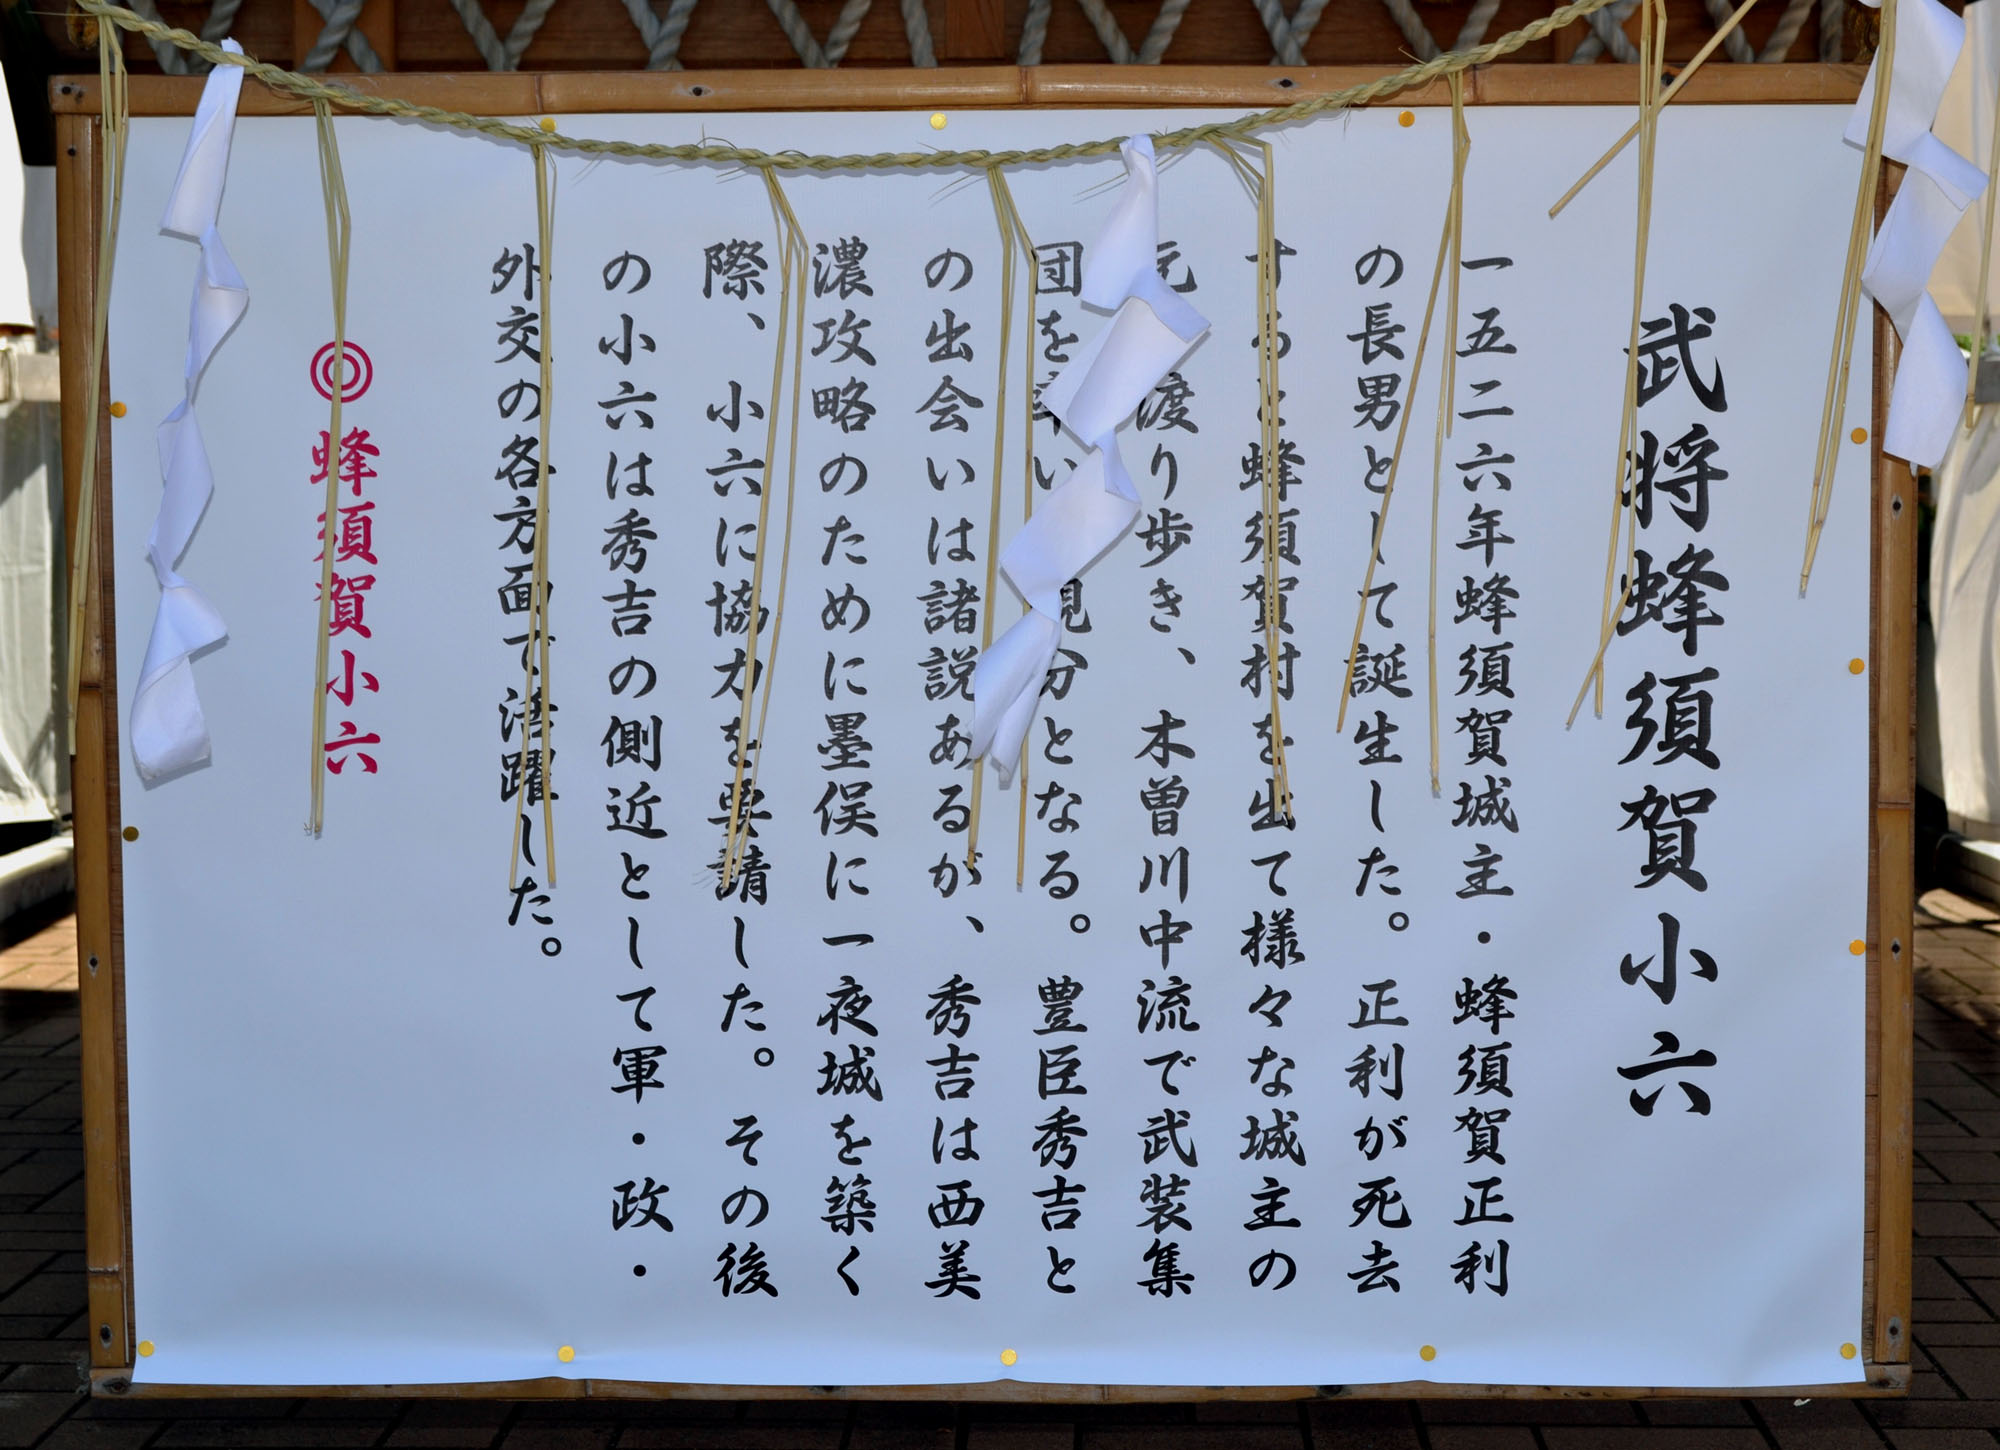 武将蜂須賀小六
一五二六年蜂須賀城主・蜂須賀正利
の長男として誕生した。正利が死去
すると蜂須賀村を出て様々な城主の
元 渡り歩き、木曽川中流で武装集
団を率い 親分となる。豊臣秀吉と
の出会いは諸説あるが、秀吉は西美
濃攻略のために墨俣に一夜城を築く
際、小六に協力を要請した。その後
の小六は秀吉の側近として軍・政・
外交の各方面で活躍した。
◎蜂須賀小六